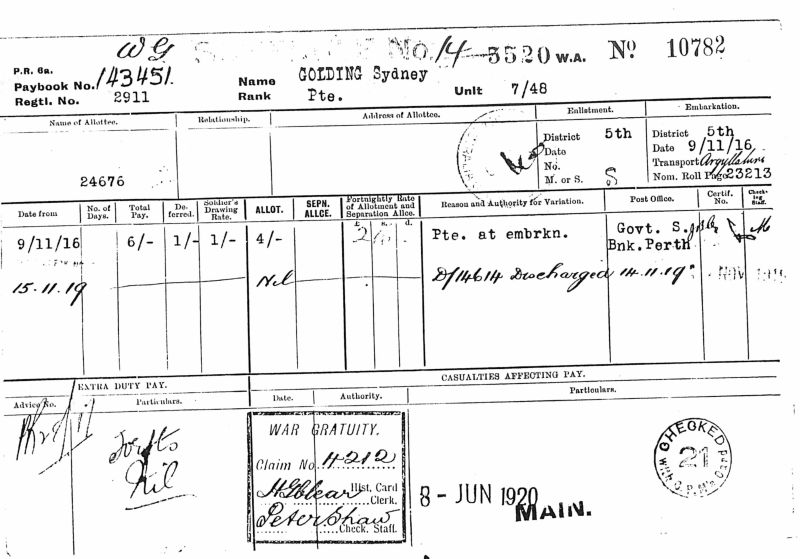 WG No. 14-5520 W.A. No 10782
P.R. 6a.
Paybook No. 143451.
Regtl. No. 2911
Name GOLDING Sydney
Rank Pte. Unit 7/48
Name of Allottee. Relationship. Address of Allottee. Enlistment. Embarkation.
District 5th District 5th
Date Date 9/11/16
No. Transport
M. or S. S Nom. Roll Page 23213
24676
Date from No. of Days. Total Pay. Deferred. Soldier's Drawing Rate. ALLOT. SEPN. ALLCE. Fortnightly Rate of Allotment and Separation Allce. £ s. d. Reason and Authority for Variation. Post Office. Certif. No. Checking Staff.
9/11/16 6/- 1/- 1/- 4/- 2 Pte. at embrkn. Govt. S.
Bnk.Perth
15.11.19 Nil D/14614 Discharged 14.11.19 NOV
EXTRA DUTY PAY. CASUALTIES AFFECTING PAY.
Advice No. Particulars. Date. Authority. Particulars.
Nil
WAR GRATUITY.
Claim No. H212
Hist. Card
Clerk.
Peter Shaw
Check. Staff.
8 - JUN 1920
MAIN.
CHECKED
21